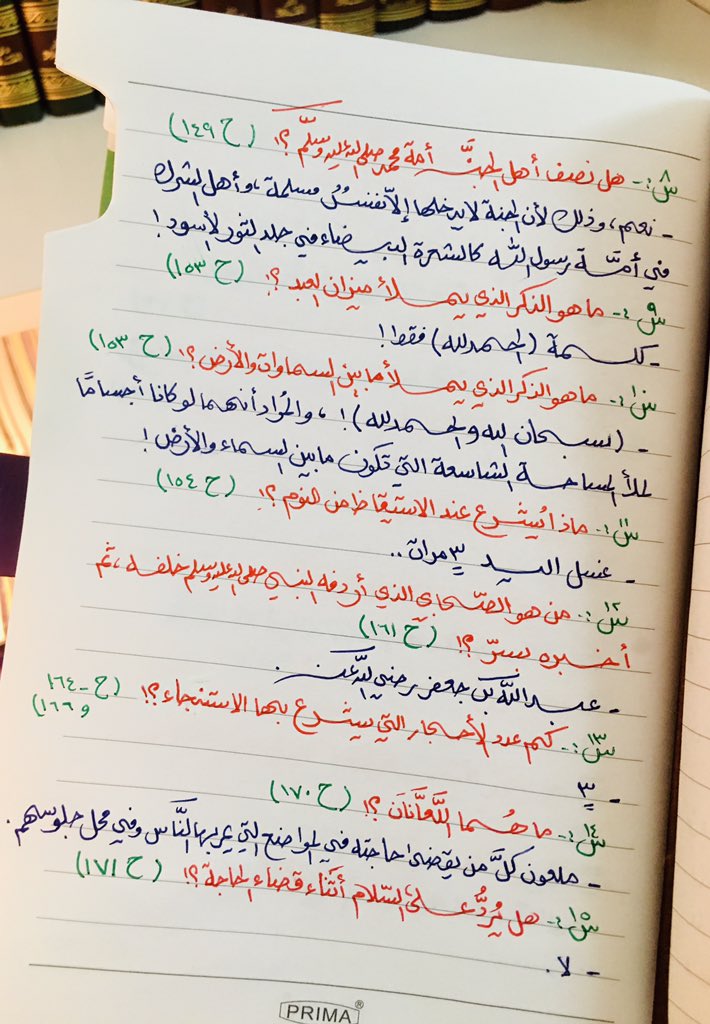 س٨:- هل نصف أهل الجنَّة أمة محمد صلى الله عليه وسلَّم ؟! (ح ١٤٩)
- نعم، وذلك لأن الجنة لا يدخلها إلا نفسٌ مسلمة، وأهل الشرك
في أمَّة رسول الله كالشعرة البيضاء في جلد الثور الأسود!
س٩:- ما هو الذكر الذي يملأ ميزان العبد ؟! (ح ١٥٣)
- كلمة (الحمدلله) فقط!
س١٠:- ما هو الذكر الذي يملأ ما بين السماوات والأرض؟! (ح ١٥٣)
- (سبحان الله والحمدلله)!، والمُراد أنهما لو كانا أجسامًا
لملأ المساحة الشاسعة التي تكون ما بين السماء والأرض!
س١١:- ماذا يُشرع عند الاستيقاظ من النوم؟! (ح ١٥٤)
- غسل اليد ٣ مرات..
س١٢:- من هو الصّحابي الذي أردفه النبي صلى الله عليه وسلم خلفه، ثم
أخبره بسرّ؟! (ح ١٦١)
- عبد الله بن جعفر رضي الله عنه.
س١٣:- كم عدد الأحجار التي يشرع بها الاستنجاء؟! (ح - ١٦٤
و ١٦٦)
- ٣
س١٤:- ما هُما اللَّعَّانَان؟! (ح ١٧٠)
- ملعون كلَّ من يقضي حاجته في المواضع التي يمر بها النَّاس وفي محل جلوسهم.
س١٥:- هل يُردُّ على السّلام أثناء قضاء الحاجة؟! (ح ١٧١)
- لا.
PRIMA®